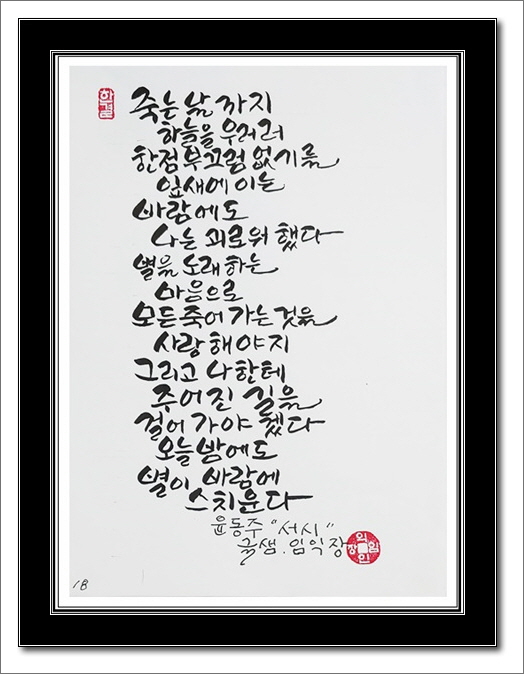 죽는 날 까지
하늘을 우러러
한점 부끄럼 없기를
잎새에 이는
바람에도
나는 괴로워 했다
별을 노래 하는
마음으로
모든 죽어 가는 것을
사랑 해야지
그리고 나한테
주어진 길을
걸어 가야 겠다
오늘 밤에도
별이 바람에
스치운다
윤동주 "서시"
글샘. 임익장
18